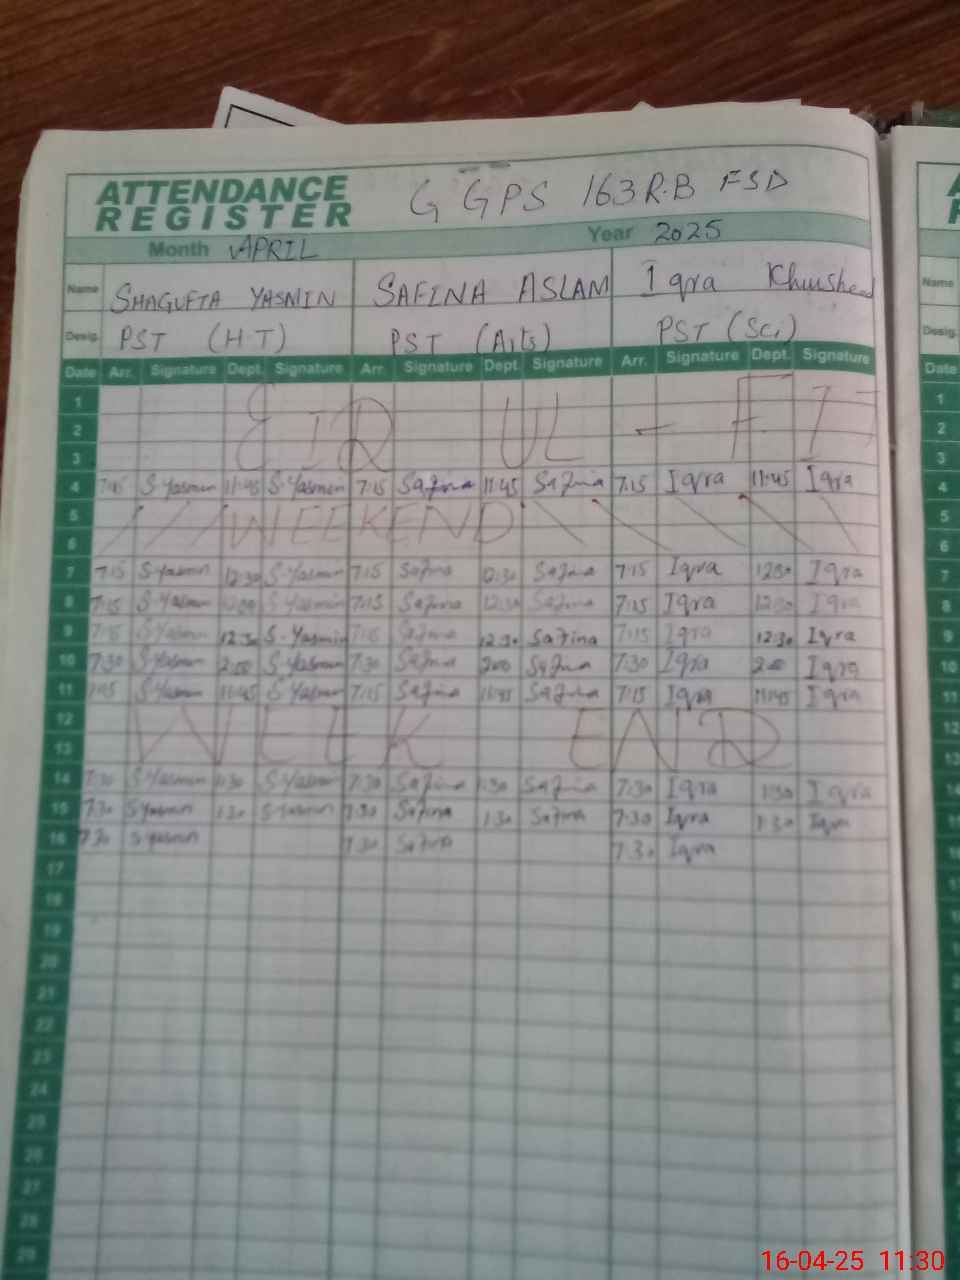 ATTENDANCE REGISTER G GPS 163 R.B FSD
Month APRIL Year 2025
Name SHAGUFTA YASMIN SAFINA ASLAM Iqra Khursheed Name
Desig. PST (H.T) PST (Arts) PST (Sci) Desig.
Date Arr. Signature Dept. Signature Arr. Signature Dept. Signature Arr. Signature Dept. Signature Date
1 1
2 EID UL - FIT 2
3 3
4 7:45 S.Yasmin 11:45 S.Yasmin 7:15 Safina 11:45 Safina 7:15 Iqra 11:45 Iqra 4
5 WEEKEND 5
6 6
7 7:15 S.Yasmin 12:30 S.Yasmin 7:15 Safina 12:30 Safina 7:15 Iqra 12:30 Iqra 7
8 7:15 S.Yasmin S.Yasmin 7:15 Safina 12:30 Safina 7:15 Iqra Iqra 8
9 7:15 S.Yasmin 12:30 S.Yasmin 7:15 Safina 12:30 Safina 7:15 Iqra 12:30 Iqra 9
10 7:30 S.Yasmin 2:00 S.Yasmin 7:30 Safina 2:00 Safina 7:30 Iqra 2:00 Iqra 10
11 S.Yasmin 11:45 S.Yasmin 7:15 Safina 11:45 Safina 7:15 Iqra 11:45 Iqra 11
12 WEEK END 12
13 13
14 7:30 S.Yasmin 1:30 S.Yasmin 7:30 Safina 1:30 Safina 7:30 Iqra 1:30 Iqra 14
15 7:30 S.Yasmin 1:30 S.Yasmin 7:30 Safina 1:30 Safina 7:30 Iqra 1:30 Iqra
16 7:30 S.Yasmin 7:30 Safina 7:30 Iqra
17
18
19
20
21
22
23
24
25
26
27
28
29
16-04-25 11:30